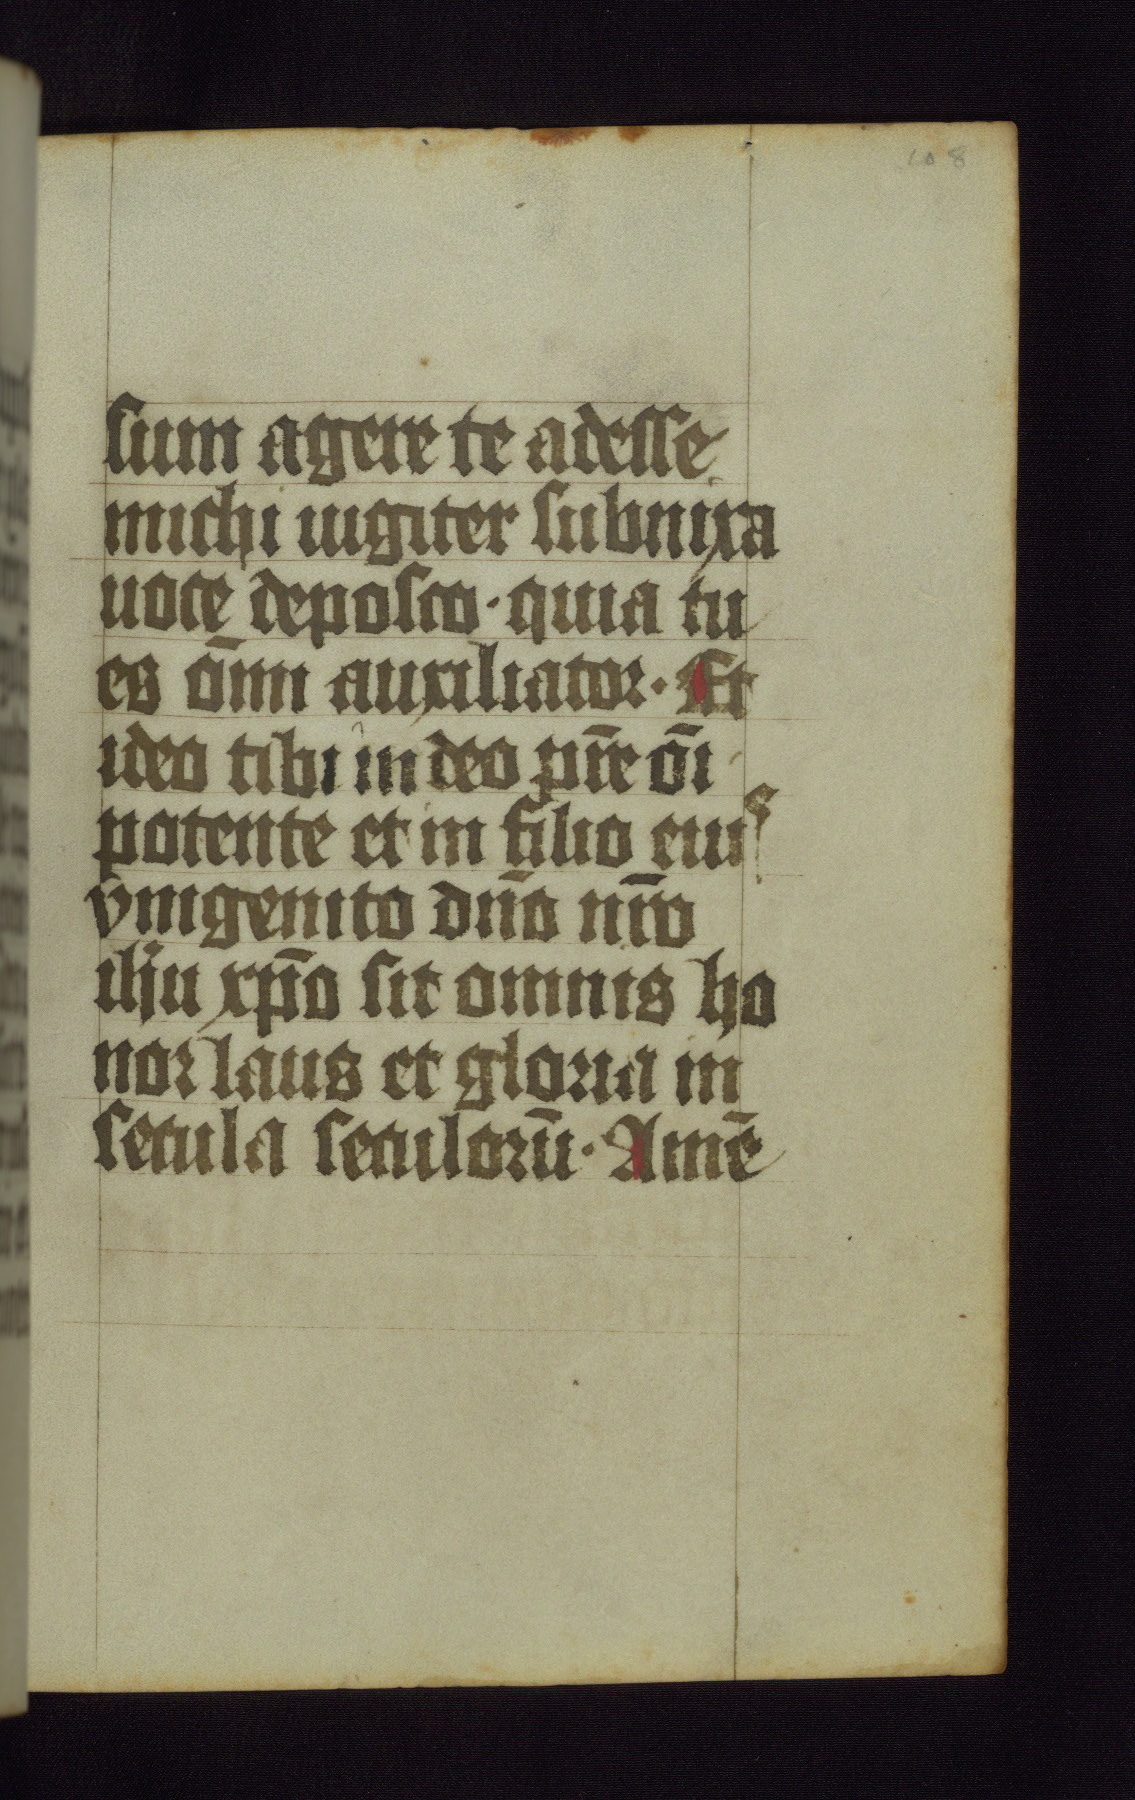 108
sum agere te adesse
michi iugiter subnixa
uoce deposco · quia tu
es om̄i auxiliator · Et
ideo tibi in deo pr̄e oī
potente et in filio eius
vnigenito dn̄o nr̄o
ih̄u xp̄o sit omnis ho
nor laus et gloria in
secula seculorū · Amē